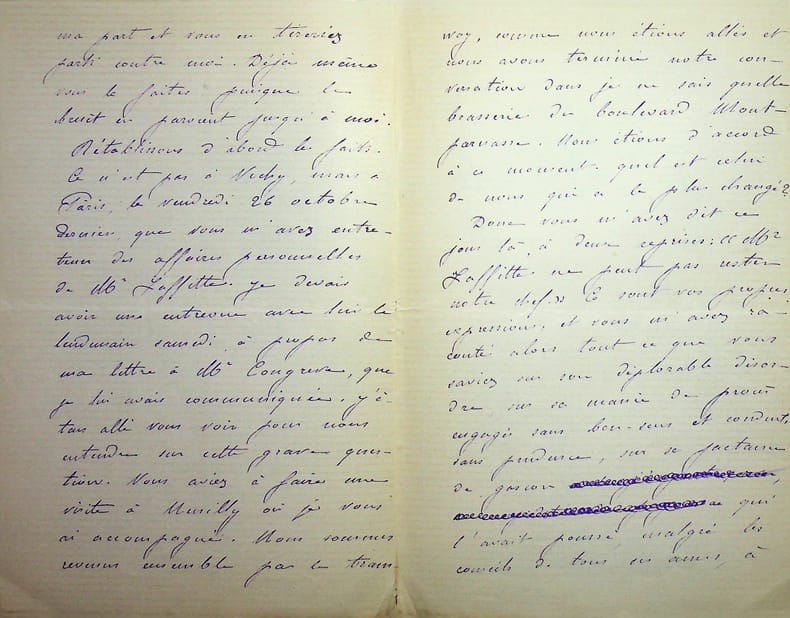 ma part et vous en tireriez
parti contre moi. Déjà même
vous le faites puisque le
bruit en parvient jusqu'à moi.
Rétablissons d'abord les faits.
Ce n'est pas à Vichy, mais à
Paris, le vendredi 26 octobre
dernier, que vous m'avez entre-
tenu des affaires personnelles
de Mr Laffitte. Je devais
avoir une entrevue avec lui le
lendemain samedi, à propos de
ma lettre à Mr Congreve, que
je lui avais communiquée. J'é-
tais allé vous voir pour nous
entendre sur cette grave ques-
tion. Vous aviez à faire une
visite à Neuilly où je vous
ai accompagné. Nous sommes
revenus ensemble par le tram-
way, comme nous étions allés et
nous avons terminé notre con-
versation dans je ne sais quelle
brasserie du boulevard Mont-
parnasse. Nous étions d'accord
à ce moment. quel est celui
de nous qui a le plus changé?
Donc vous m'avez dit ce
jour là, à deux reprises: « Mr
Laffitte ne peut pas rester
notre chef. » Ce sont vos propres
expressions, et vous m'avez ra-
conté alors tout ce que vous
saviez sur son déplorable désor-
dre, sur sa manie de procès
engagés sans bon-sens et conduits
sans prudence, sur sa jactance
de gascon
qui
l'avait poussé, malgré les
conseils de tous ses amis, à